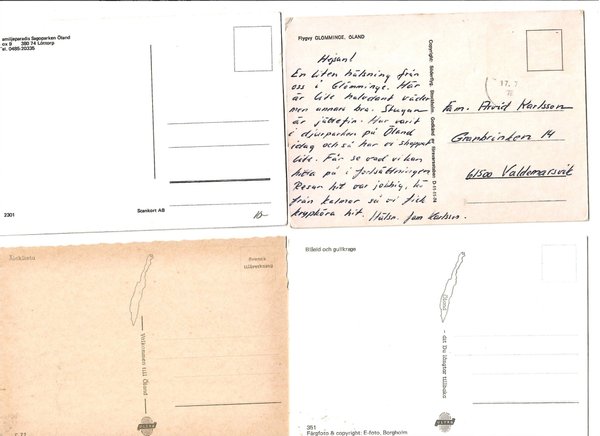 amiljeparadis Sagoparken Öland
ox 9 380 74 Löttorp
el. 0485-20335
2301
Stenkort AB
Flygvy GLÖMMINGE, ÖLAND
Hejsan!
En liten hälsning från
oss i Glömminge. Här
är lite halvdant väder
men annars bra. Stugan
är jättefin. Har varit
i djurparken på Öland
idag och så har vi shoppat
lite. Får se vad vi kan
hitta på i fortsättningen.
Resan hit var jobbig,
från Kalmar så vi fick
krypköra hit. Hälsn. fam Karlsson.
17. 7
Fam. Arvid Karlsson
Granbrinken 14
61500 Valdemarsvik
Älvkåstu
Svensk
tillverkning
Välkommen till Öland
Blåeld och gullkrage
Öland
- dit Du längtar tillbaka
351
Färgfoto & copyright: E-foto, Borgholm